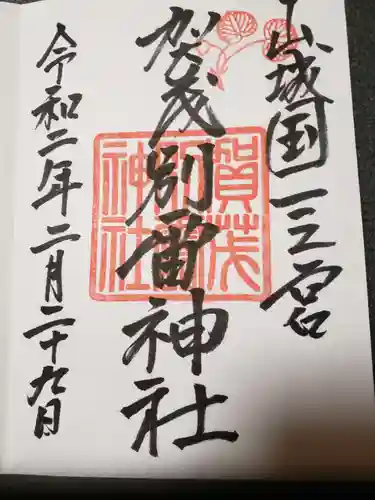 山城国一之宮
賀茂別雷神社
令和二年二月二十九日
賀茂
神社